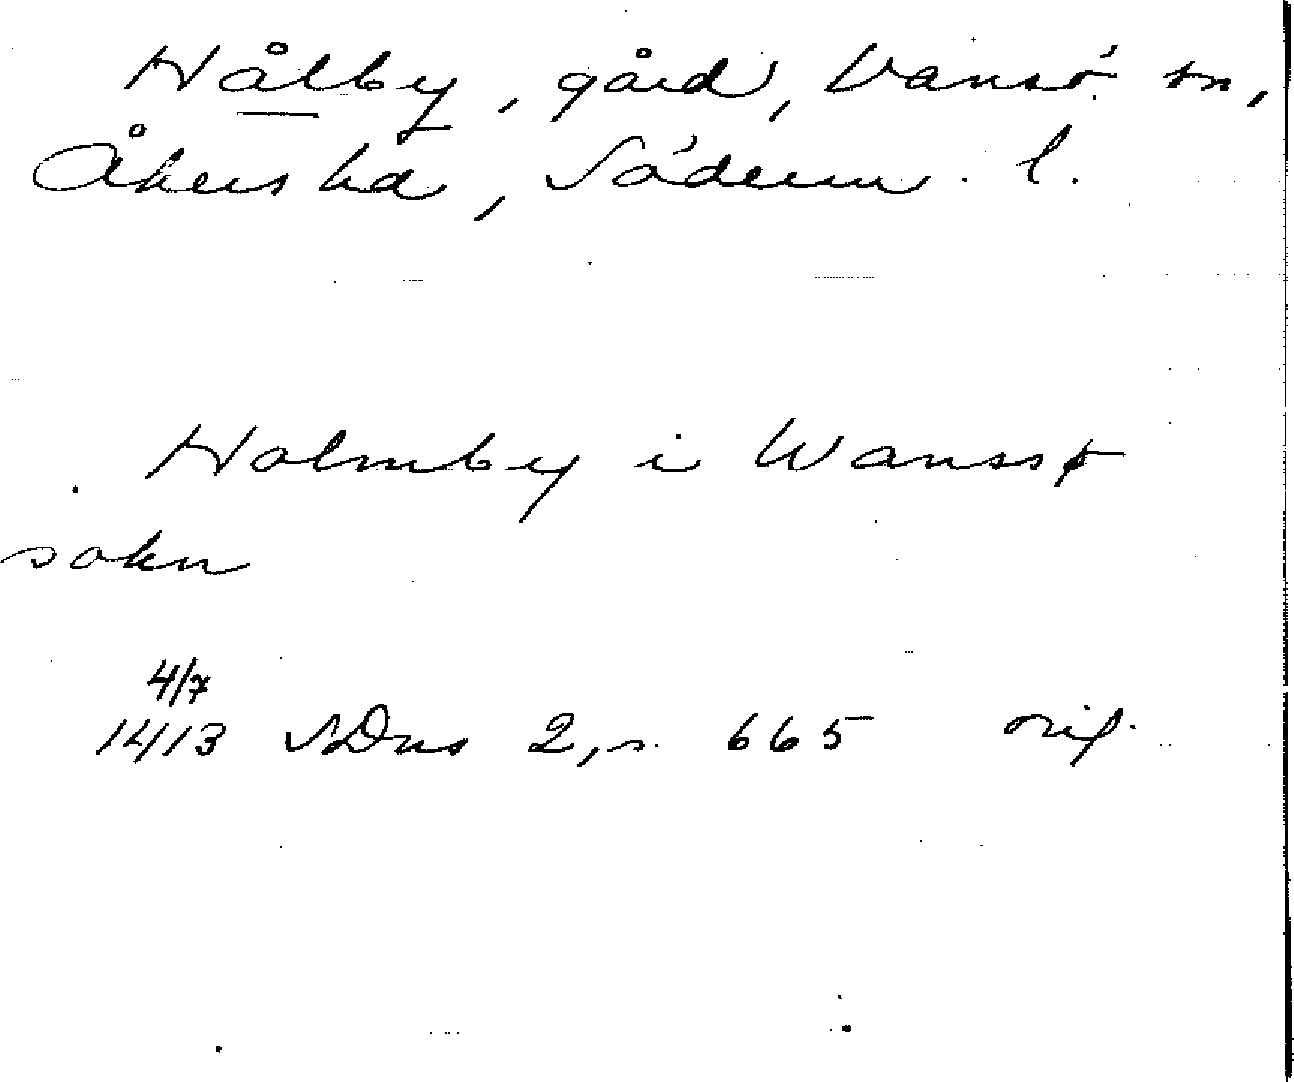 Hålby, gård, Vansö sn,
Åkers hd, Söderm. l.
Holmby i Wanssø
sokn
4/7
1413 SDns 2, s. 665 orig.